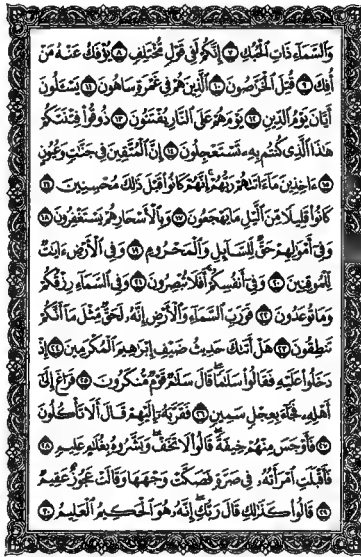 وَالسَّمَاءِ ذَاتِ الْحُبُكِ ٧ إِنَّكُمْ لَفِي قَوْلٍ مُّخْتَلِفٍ ٨ يُؤْفَكُ عَنْهُ مَنْ
أُفِكَ ٩ قُتِلَ الْخَرَّاصُونَ ١٠ الَّذِينَ هُمْ فِي غَمْرَةٍ سَاهُونَ ١١ يَسْـَٔلُونَ
أَيَّانَ يَوْمُ الدِّينِ ١٢ يَوْمَ هُمْ عَلَى النَّارِ يُفْتَنُونَ ١٣ ذُوقُوا فِتْنَتَكُمْ
هَٰذَا الَّذِي كُنتُم بِهِ تَسْتَعْجِلُونَ ١٤ إِنَّ الْمُتَّقِينَ فِي جَنَّٰتٍ وَعُيُونٍ
١٥ ءَاخِذِينَ مَا ءَاتَىٰهُمْ رَبُّهُمْ إِنَّهُمْ كَانُوا قَبْلَ ذَٰلِكَ مُحْسِنِينَ ١٦
كَانُوا قَلِيلًا مِّنَ اللَّيْلِ مَا يَهْجَعُونَ ١٧ وَبِالْأَسْحَارِ هُمْ يَسْتَغْفِرُونَ ١٨
وَفِي أَمْوَٰلِهِمْ حَقٌّ لِّلسَّائِلِ وَالْمَحْرُومِ ١٩ وَفِي الْأَرْضِ ءَايَٰتٌ
لِّلْمُوقِنِينَ ٢٠ وَفِي أَنفُسِكُمْ أَفَلَا تُبْصِرُونَ ٢١ وَفِي السَّمَاءِ رِزْقُكُمْ
وَمَا تُوعَدُونَ ٢٢ فَوَرَبِّ السَّمَاءِ وَالْأَرْضِ إِنَّهُ لَحَقٌّ مِّثْلَ مَا أَنَّكُمْ
تَنطِقُونَ ٢٣ هَلْ أَتَىٰكَ حَدِيثُ ضَيْفِ إِبْرَٰهِيمَ الْمُكْرَمِينَ ٢٤ إِذْ
دَخَلُوا عَلَيْهِ فَقَالُوا سَلَٰمًا قَالَ سَلَٰمٌ قَوْمٌ مُّنكَرُونَ ٢٥ فَرَاغَ إِلَىٰ
أَهْلِهِ فَجَاءَ بِعِجْلٍ سَمِينٍ ٢٦ فَقَرَّبَهُ إِلَيْهِمْ قَالَ أَلَا تَأْكُلُونَ
٢٧ فَأَوْجَسَ مِنْهُمْ خِيفَةً قَالُوا لَا تَخَفْ وَبَشَّرُوهُ بِغُلَٰمٍ عَلِيمٍ ٢٨
فَأَقْبَلَتِ امْرَأَتُهُ فِي صَرَّةٍ فَصَكَّتْ وَجْهَهَا وَقَالَتْ عَجُوزٌ عَقِيمٌ
٢٩ قَالُوا كَذَٰلِكِ قَالَ رَبُّكِ إِنَّهُ هُوَ الْحَكِيمُ الْعَلِيمُ ٣٠